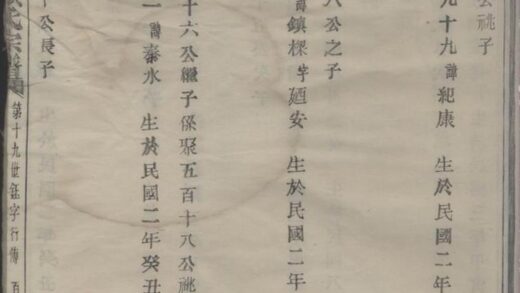 公祧子
九十九 諱紀康 生於民國二年
八公之子
諱鎮樑字廼安 生於民國二年
十六公繼子係聚五百十八公祧
一 諱泰水 生於民國二年癸丑
公長子
氏宗譜 第十九世鈺字行傳